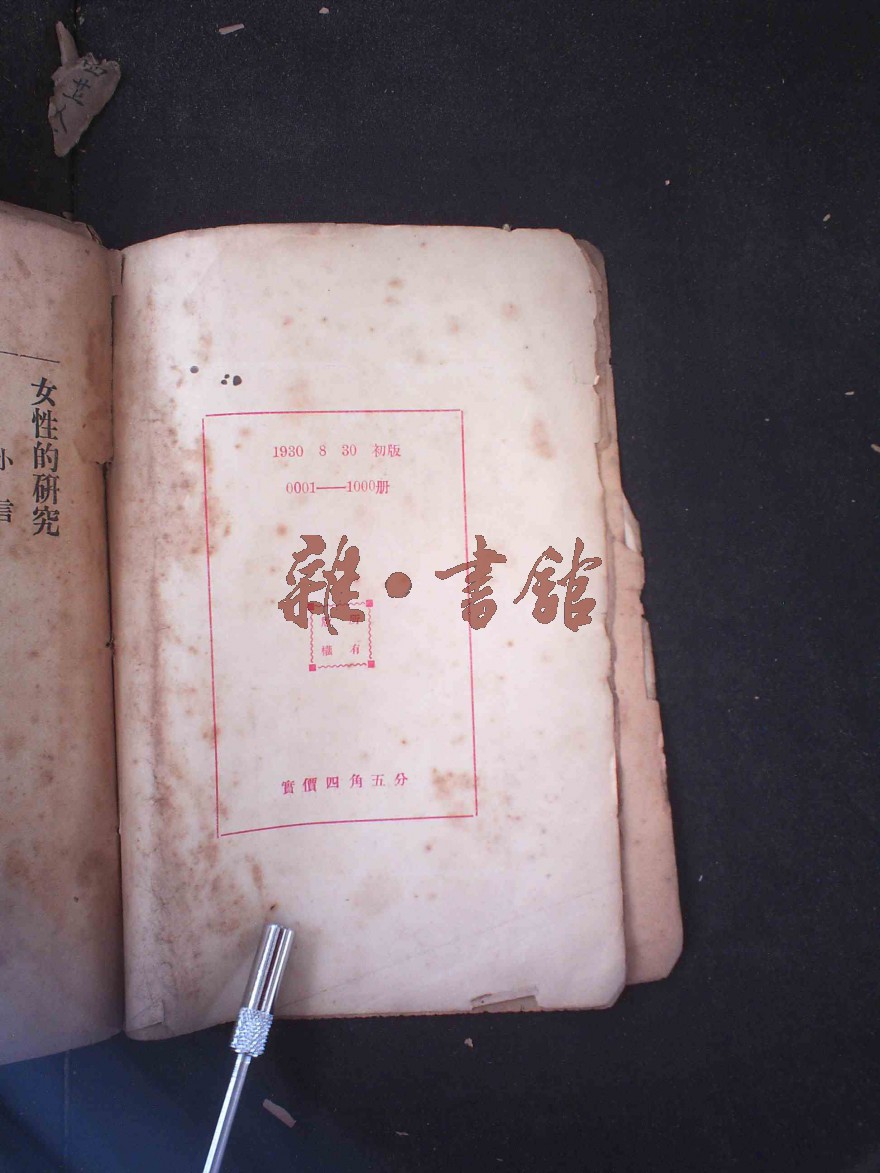 1930 8 30 初版
0001——1000册
雜·書館
權有
實價四角五分
女性的研究
小言